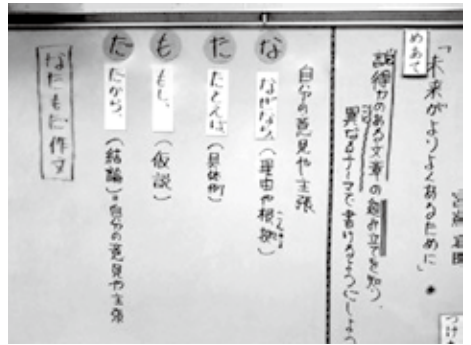 「未来がよりよくあるために」
めあて
説得力のある文章の組み立てを知り、
異なるテーマで書けるようにしよう
自分の意見や主張
な なぜなら、(理由や根拠)
こんきょ
た たとえば、(具体例)
も もし、(仮説)
た だから、(結論)=自分の意見や主張
なたもた作文